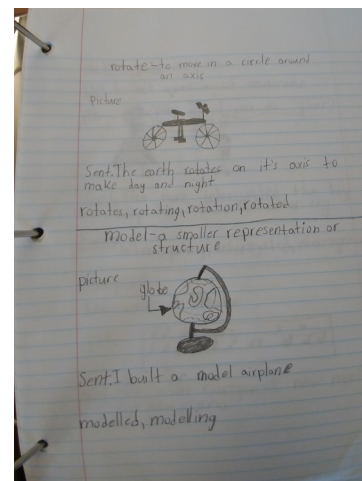 rotate-to move in a circle around
an axis
Picture
Sent.The earth rotates on it's axis to
make day and night
rotates, rotating, rotation, rotated
model-a smaller representation or
structure
picture
globe
Sent.I built a model airplane
modelled, modelling